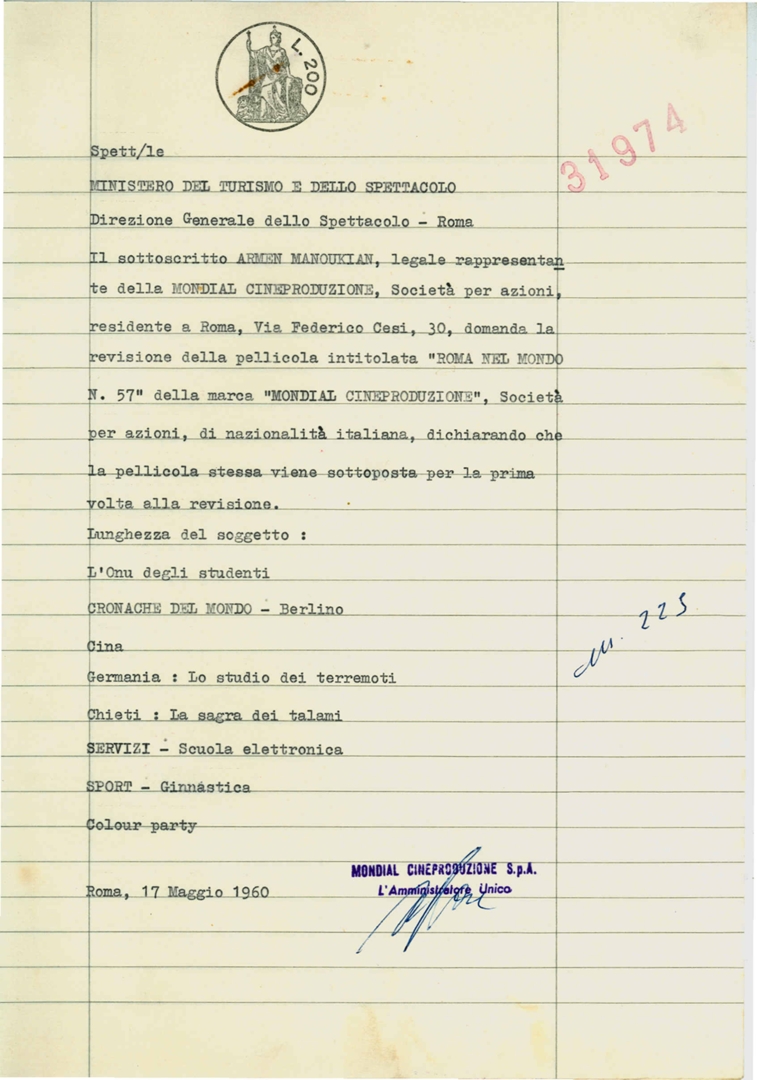 L. 200
31974
Spett/le
MINISTERO DEL TURISMO E DELLO SPETTACOLO
Direzione Generale dello Spettacolo - Roma
Il sottoscritto ARMEN MANOUKIAN, legale rappresentan
te della MONDIAL CINEPRODUZIONE, Società per azioni,
residente a Roma, Via Federico Cesi, 30, domanda la
revisione della pellicola intitolata "ROMA NEL MONDO
N. 57" della marca "MONDIAL CINEPRODUZIONE", Società
per azioni, di nazionalità italiana, dichiarando che
la pellicola stessa viene sottoposta per la prima
volta alla revisione.
Lunghezza del soggetto :
L'Onu degli studenti
CRONACHE DEL MONDO - Berlino
m. 225
Cina
Germania : Lo studio dei terremoti
Chieti : La sagra dei talami
SERVIZI - Scuola elettronica
SPORT - Ginnastica
Colour party
MONDIAL CINEPRODUZIONE S.p.A.
L'Amministratore Unico
Roma, 17 Maggio 1960